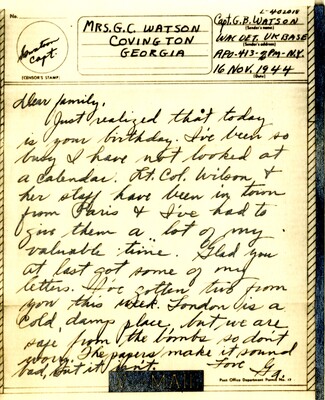 L-402018
No.
MRS. G.C. WATSON
COVINGTON
GEORGIA
Capt. G.B. WATSON
(Sender's name)
WAC DET. UK BASE
(Sender's address)
APO-413-2PM-N.Y.
16 NOV. 1944
(Date)
Watson
Capt.
(CENSOR'S STAMP)
Dear family,
Just realized that today
is your birthday. I've been so
busy I have not looked at
a calendar. Lt. Col. Wilson &
her staff have been in town
from Paris & I've had to
give them a lot of my
valuable time. Glad you
at last got some of my
letters. I've gotten two from
you this week. London is a
cold, damp place, but we are
safe from the bombs so don't
worry. The papers make it sound
bad, but it isn't. Love
V-MAIL
Post Office Department Permit No. 17